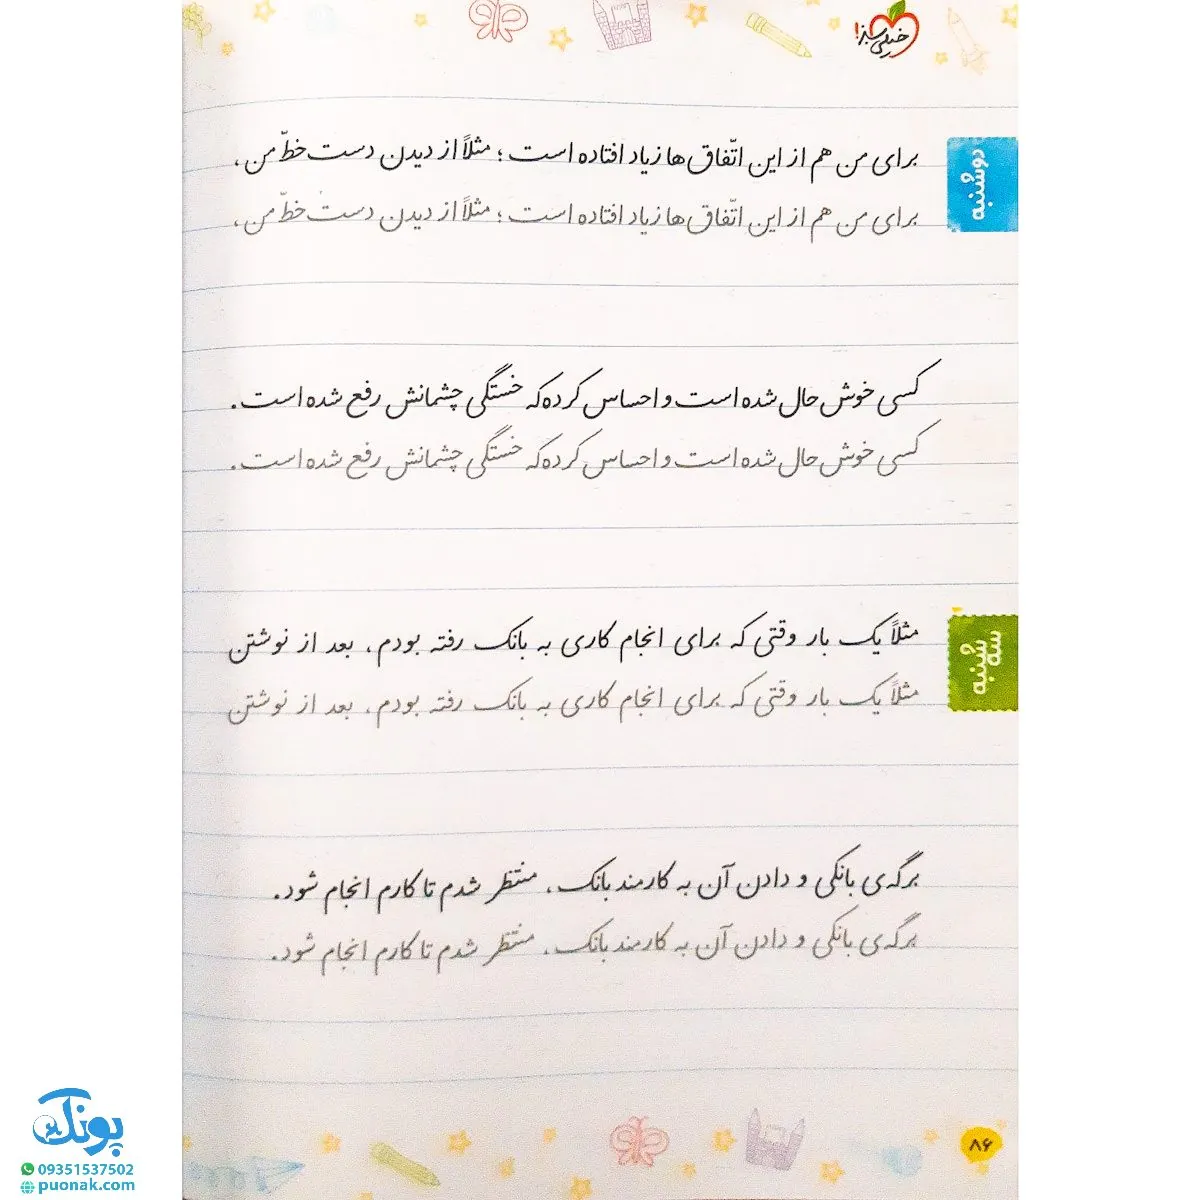 خیلی سبز!
دوشنبه
برای من هم از این اتّفاق‌ها زیاد افتاده است؛ مثلاً از دیدن دست خطّ من،
برای من هم از این اتّفاق‌ها زیاد افتاده است؛ مثلاً از دیدن دست خطّ من،
کسی خوش‌حال شده است و احساس کرده که خستگی چشمانش رفع شده است.
کسی خوش‌حال شده است و احساس کرده که خستگی چشمانش رفع شده است.
سه شنبه
مثلاً یک بار وقتی که برای انجام کاری به بانک رفته بودم، بعد از نوشتن
مثلاً یک بار وقتی که برای انجام کاری به بانک رفته بودم، بعد از نوشتن
برگه‌ی بانکی و دادن آن به کارمند بانک، منتظر شدم تا کارم انجام شود.
برگه‌ی بانکی و دادن آن به کارمند بانک، منتظر شدم تا کارم انجام شود.
۸۶
پونک
09351537502
puonak.com